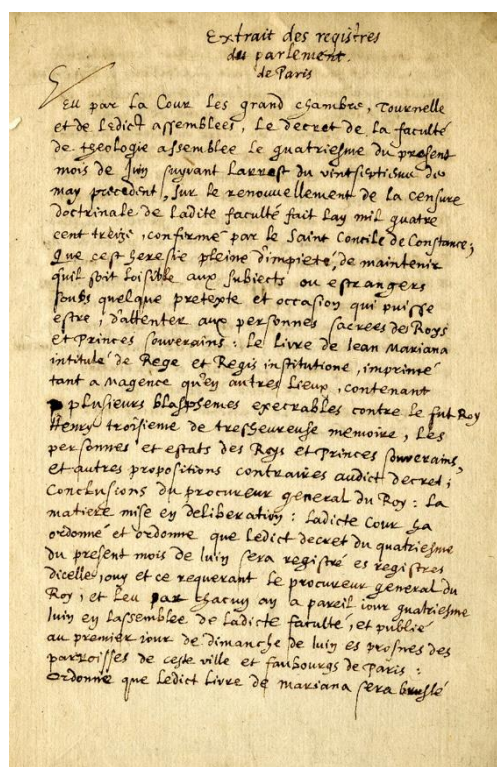 Extrait des registres
du parlement.
de Paris
Veu par la Cour les grand chambre, Tournelle
et de Ledict assemblees, Le decret de la faculté
de theologie assemblee le quatriesme du present
mois de Juin suyvant Larrest du vintseptiesme de
may precedent, sur le renouvellement de la censure
doctrinale de Ladite faculté fait Lay mil quatre
cent treize, confirmé par le Saint Concile de Constance;
Que cest heresie pleine d'impieté, de maintenir
quil soit loisible aux Subiects ou estrangers
soubs quelque pretexte et occasion qui puisse
estre, d'attenter aux personnes sacrees des Roys
et Princes souverains: Le livre de Iean Mariana
intitulé de Rege et Regis institutione, imprimé
tant a Magence qu'en autres Lieux, contenant
plusieurs blasphemes execrables contre le fut Roy
Henry troisieme de tresheureuse memoire, Les
personnes et estats des Roys et Princes souverains,
et autres propositions contraires audict decret;
Conclusions du procureur general du Roy: La
matiere mise en deliberation: Ladicte Cour ha
ordonné et ordonne que Ledict decret du quatriesme
du present mois de Iuin sera registré es registres
dicelle, ouy et ce requerant le procureur general du
Roy; et Leu par chacun an a pareil iour quatriesme
Iuin en Lassemblee de Ladicte faculté, et publié
au premier iour de dimanche de Iuin es prosnes des
parroisses de ceste ville et faubourgs de Paris:
Ordonne que Ledict Livre de mariana sera bruslé